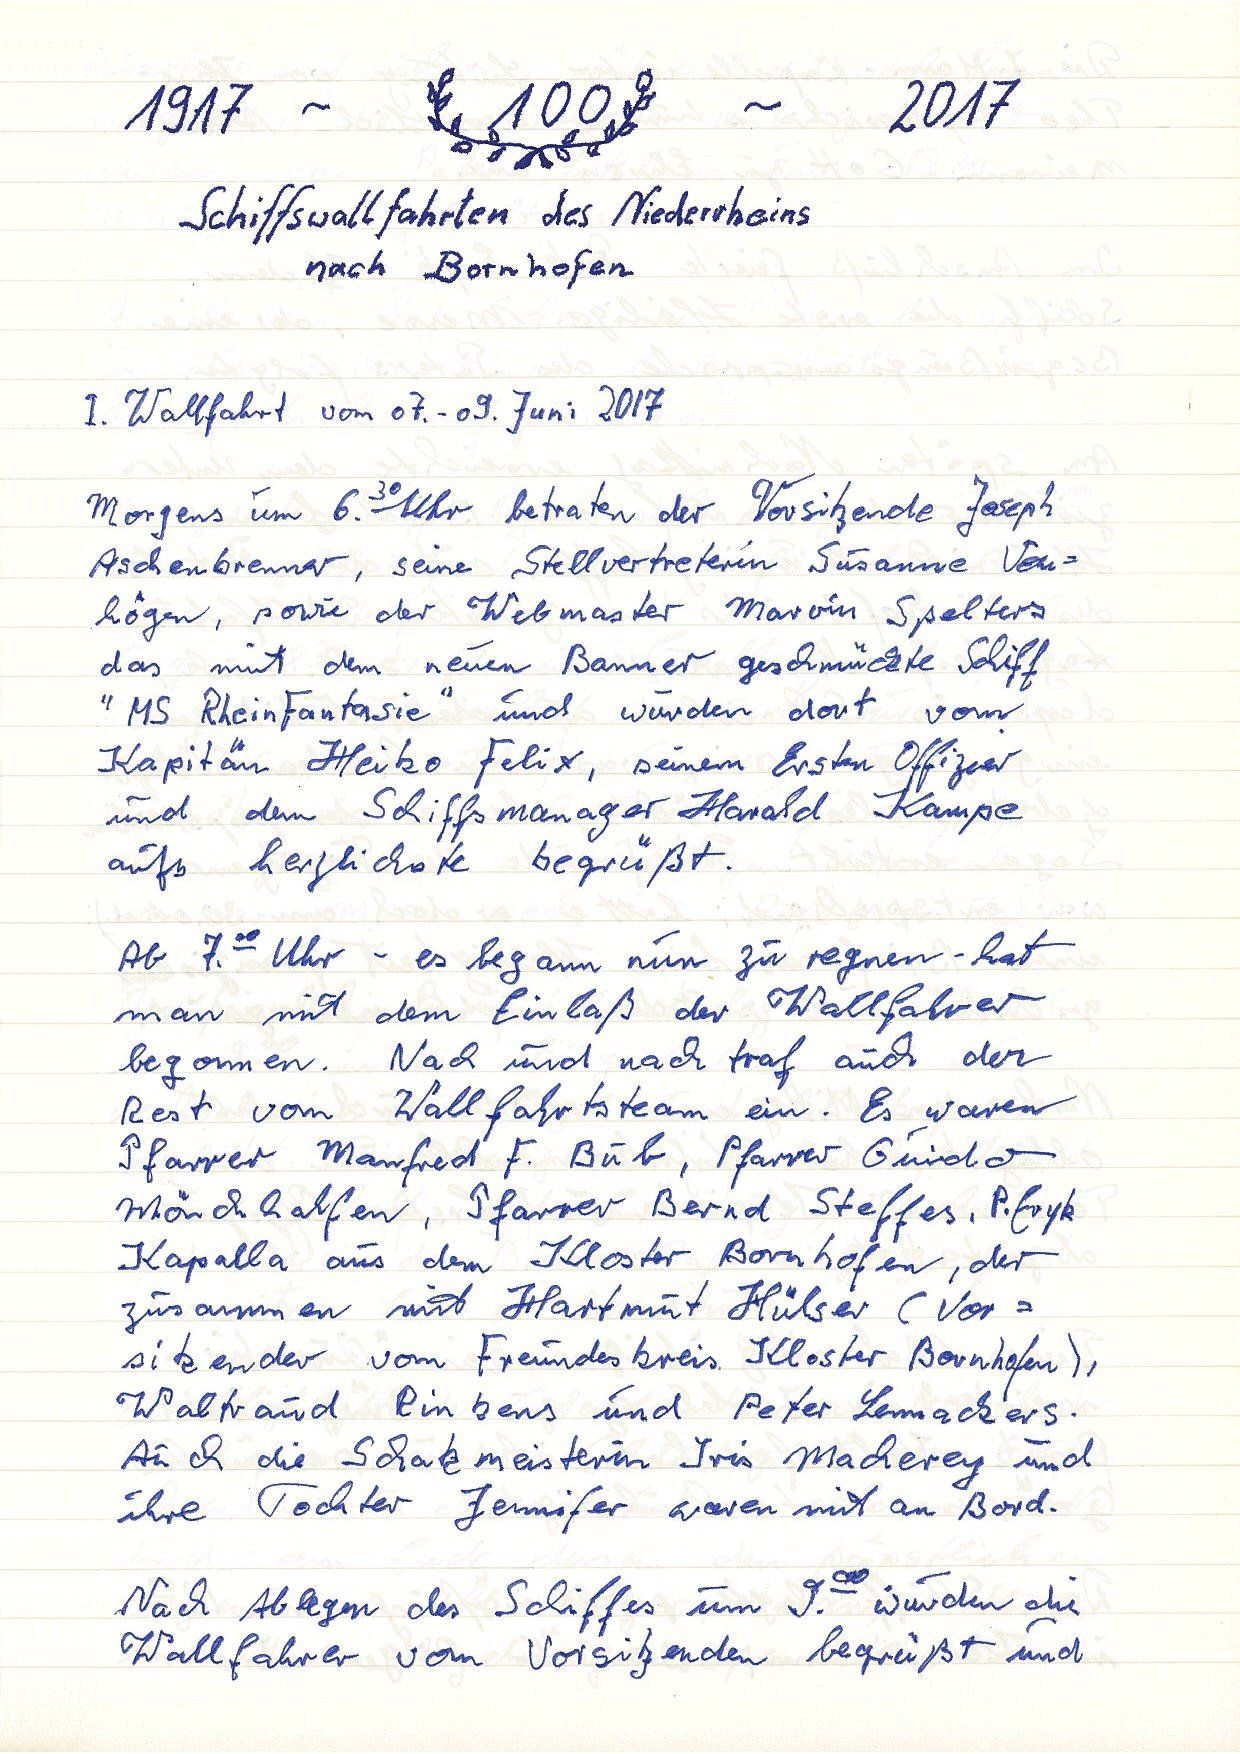 1917 ~ 100 ~ 2017
Schiffswallfahrten des Niederrheins
nach Bornhofen
I. Wallfahrt vom 07.-09. Juni 2017
Morgens um 6.30 Uhr betraten der Vorsitzende Joseph
Aschenbrenner, seine Stellvertreterin Susanne Ven=
högen, sowie der Webmaster Marvin Spelters
das mit dem neuen Banner geschmückte Schiff
"MS RheinFantasie" und wurden dort vom
Kapitän Heiko Felix, seinem Ersten Offizier
und dem Schiffsmanager Harald Kampe
aufs herzlichste begrüßt.
Ab 7.00 Uhr - es begann nun zu regnen - hat
man mit dem Einlaß der Wallfahrer
begonnen. Nach und nach traf auch der
Rest vom Wallfahrtsteam ein. Es waren
Pfarrer Manfred F. Bub, Pfarrer Guido
Mönchhalfen, Pfarrer Bernd Steffes, P. Eryk
Kapalla aus dem Kloster Bornhofen, der
zusammen mit Hartmut Hülser (Vor=
sitzender vom Freundeskreis Kloster Bornhofen),
Waltraud Rinkens und Peter Lennackers.
Auch die Schatzmeisterin Iris Macherey und
ihre Tochter Jennifer waren mit an Bord.
Nach Ablegen des Schiffes um 9.00 wurden die
Wallfahrer vom Vorsitzenden begrüßt und